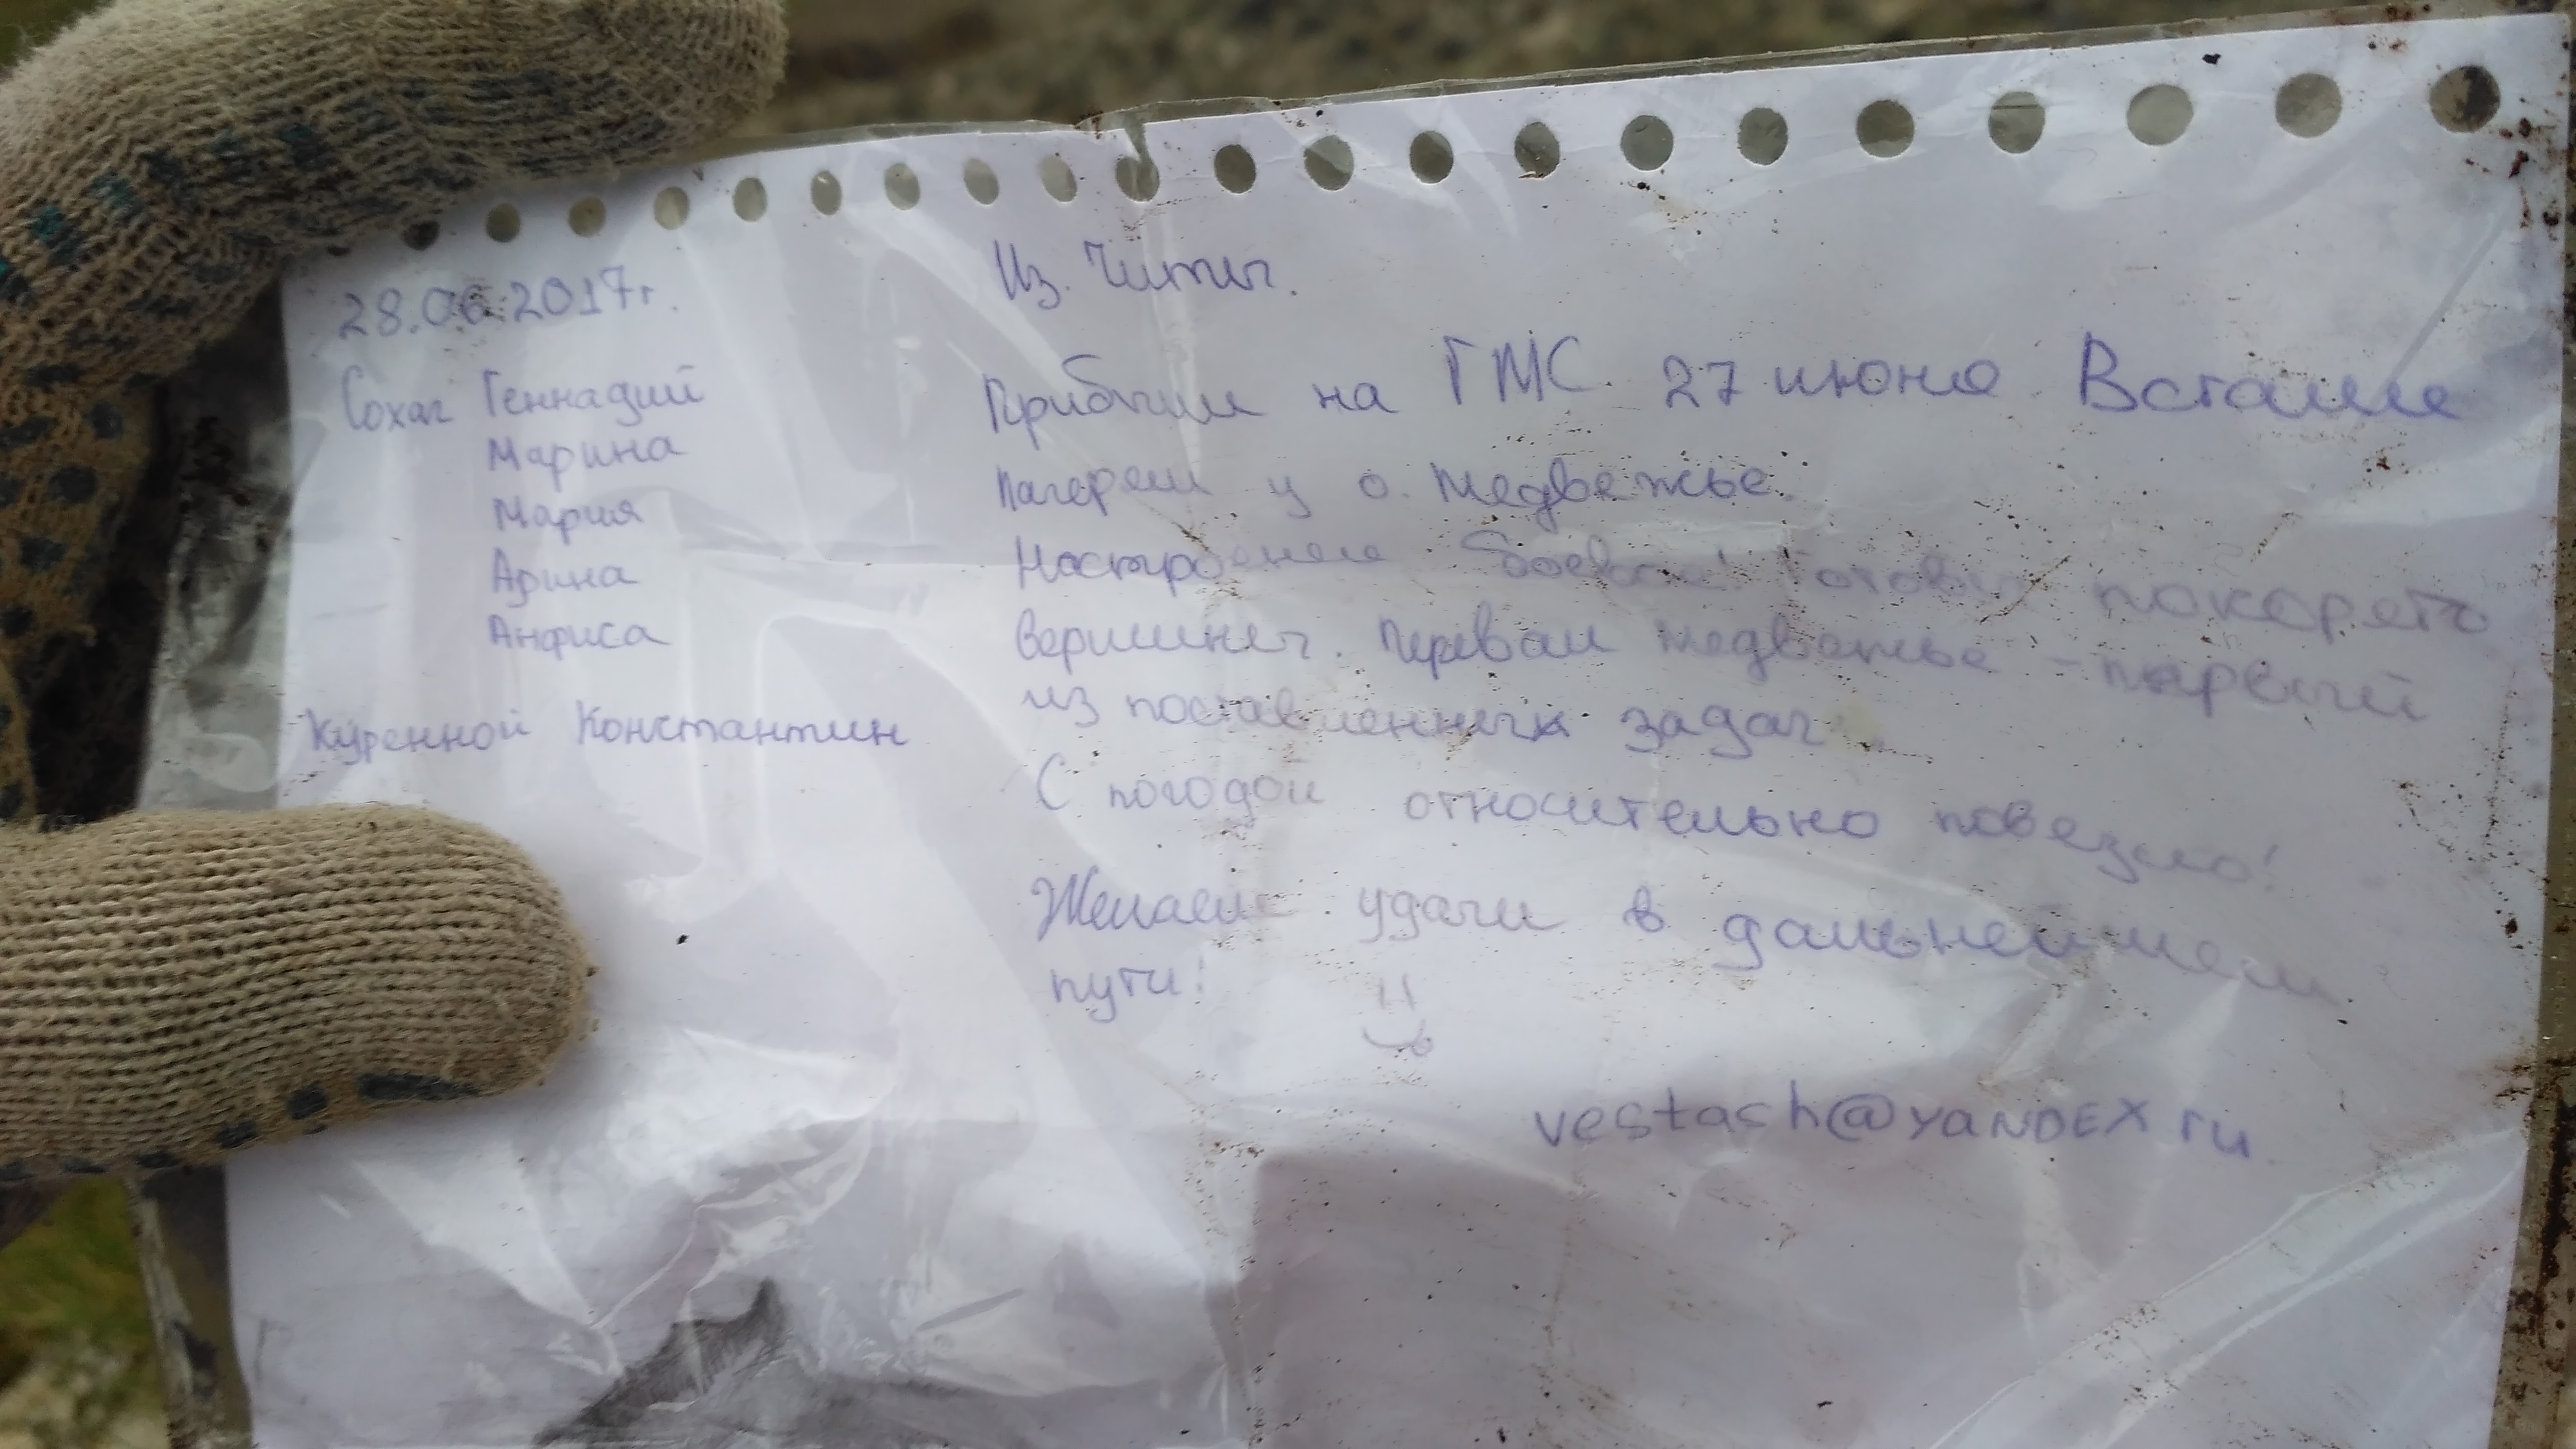 28.06.2017г.
Сохач Геннадий
Марина
Мария
Арина
Анфиса
Куренной Константин
Из. Читы.
Прибыли на ГМС 27 июня Встали
лагерем у о. Медвежье.
Настроение боевое! Готовы покорять
вершины. Перевал Медвежье - первый
из поставленных задач
С погодой относительно повезло!
Желаем удачи в дальнейшем
пути!
vestash@YANDEX.ru